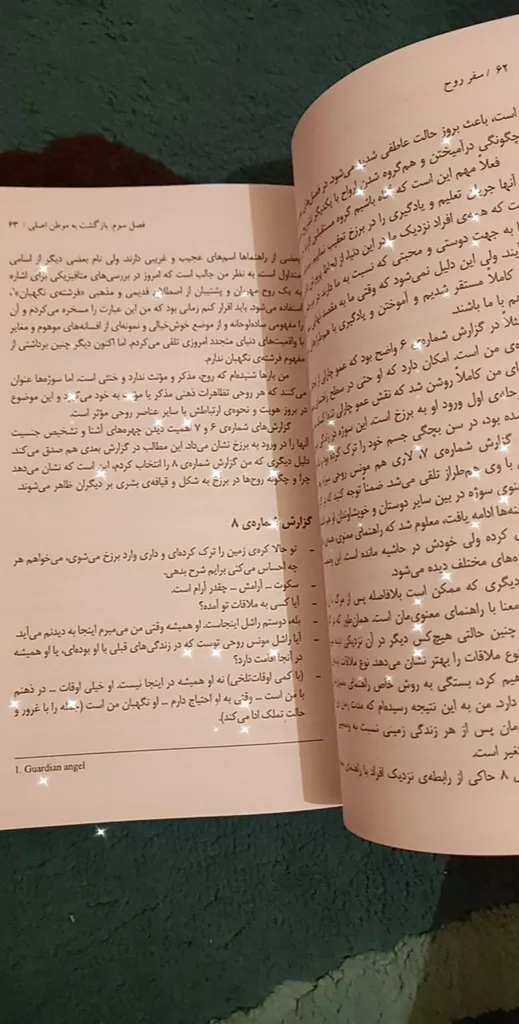 ۶۲ / سفر روح
است، باعث بروز حالت عاطفی شدید می‌شود. در فصل‌های
چگونگی درآمیختن و هم‌گروه شدن ارواح با یکدیگر
فعلاً مهم این است که باشیم گروه
آنها جریان تعلیم و یادگیری را در برزخ تعقیب
است که همه‌ی افراد نزدیک ما در این دنیا، از لحاظ
یا به جهت دوستی و محبتی که نسبت به ما دارند در
آیند. ولی این دلیل نمی‌شود که وقتی ما به مقصد
کاملاً مستقر شدیم و آموختن و یادگیری با
هم با ما باشند.
مثلاً در گزارش شماره‌ی ۶ واضح بود که عمو چارلی از
ه‌ی من است. امکان دارد که او حتی در سطح
ای من کاملاً روشن شد که نقش عمو چارلی
حله‌ی اول ورود او به برزخ است. این سوژه در زندگی
شده بود، در سن بچگی جسم خود را ترک کرده بود و
گزارش شماره‌ی ۷، لاری هم مونس روحی سوژه
با وی هم‌طراز تلقی می‌شد. ضمناً توجه کنید که
نوی سوژه در بین سایر دوستان و خویشاوندان او هم
نه‌ها ادامه یافت، معلوم شد که راهنمای معنوی،
کرده ولی خودش در حاشیه مانده است. این
ه‌های مختلف دیده می‌شود.
دیگری که ممکن است بلافاصله پس از مرگ
معنا با راهنمای معنوی‌مان است. همان‌طور که در
چنین حالتی هیچ‌کس دیگر در آن نزدیکی دیده
وع ملاقات را بهتر نشان می‌دهد. نوع ملاقات
هیم کرد، بستگی به روش خاص راهنمای
دارد. من به این نتیجه رسیده‌ام که مدت زمان
مان پس از هر زندگی زمینی نسبت به
تغیر است.
ی ۸ حاکی از رابطه‌ی نزدیک افراد با راهنمای
فصل سوم. بازگشت به موطن اصلی / ۶۳
بعضی از راهنماها اسم‌های عجیب و غریبی دارند. ولی نام بعضی دیگر از اسامی
متداول است. به نظر من جالب است که امروز در بررسی‌های متافیزیکی برای اشاره
به یک روح مهربان و پشتیبان از اصطلاح قدیمی و مذهبی «فرشته‌ی نگهبان»¹،
استفاده می‌شود. باید اقرار کنم زمانی بود که من این عبارت را مسخره می‌کردم و آن
را مفهومی ساده‌لوحانه و از موضع خوش‌خیالی و نمونه‌ای از افسانه‌های موهوم و مغایر
با واقعیت‌های دنیای متجدد امروزی تلقی می‌کردم. اما اکنون دیگر چنین برداشتی از
مفهوم فرشته‌ی نگهبان ندارم.
من بارها شنیده‌ام که روح، مذکر و مؤنث ندارد و خنثی است. اما سوژه‌ها عنوان
می‌کنند که هر روحی تظاهرات ذهنی مذکر یا مؤنث به خود می‌گیرد و این موضوع
در بروز هویت و نحوه‌ی ارتباطش با سایر عناصر روحی مؤثر است.
گزارش‌های شماره‌ی ۶ و ۷ اهمیت دیدن چهره‌های آشنا و تشخیص جنسیت
آنها را در ورود به برزخ نشان می‌داد. این مطالب در گزارش بعدی هم صدق می‌کند
دلیل دیگری که من گزارش شماره‌ی ۸ را انتخاب کردم، این است که نشان می‌دهد
چرا و چگونه روح‌ها در برزخ به شکل و قیافه‌ی بشری بر دیگران ظاهر می‌شوند.
گزارش شماره‌ی ۸
- تو حالا کره‌ی زمین را ترک کرده‌ای و داری وارد برزخ می‌شوی، می‌خواهم هر
چه احساس می‌کنی برایم شرح بدهی.
- سکوت ـ آرامش ـ چقدر آرام است.
- آیا کسی به ملاقات تو آمده؟
- بله، دوستم راشل اینجاست. او همیشه وقتی من می‌میرم اینجا به دیدنم می‌آید.
- آیا راشل مونس روحی توست که در زندگی‌های قبلی با او بوده‌ای، یا او همیشه
در آنجا اقامت دارد؟
- (با کمی اوقات‌تلخی) نه او همیشه در اینجا نیست. او خیلی اوقات ـ در ذهنم
با من است ـ وقتی به او احتیاج دارم ـ او نگهبان من است (جمله را با غرور و
حالت تملک ادا می‌کند).
1. Guardian angel